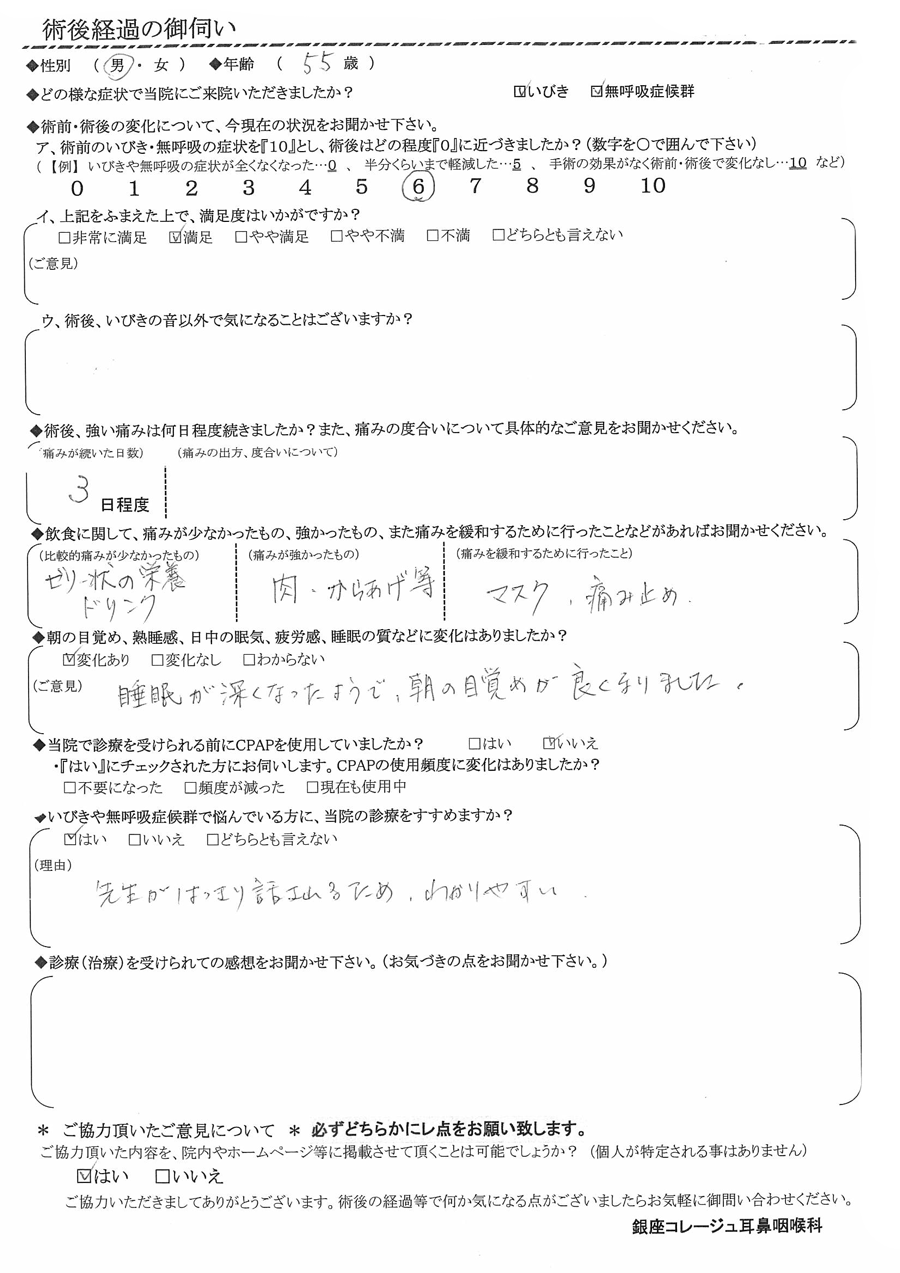 術後経過の御伺い
◆性別 ( 男 ・ 女 ) ◆年齢 ( 55 歳 )
◆どの様な症状で当院にご来院いただきましたか？ ☑いびき ☑無呼吸症候群
◆術前・術後の変化について、今現在の状況をお聞かせ下さい。
ア、術前のいびき・無呼吸の症状を『10』とし、術後はどの程度『0』に近づきましたか？(数字を〇で囲んで下さい)
(【例】 いびきや無呼吸の症状が全くなくなった…0 、 半分くらいまで軽減した…5 、 手術の効果がなく術前・術後で変化なし…10 など)
0 1 2 3 4 5 6 7 8 9 10
イ、上記をふまえた上で、満足度はいかがですか？
□非常に満足 ☑満足 □やや満足 □やや不満 □不満 □どちらとも言えない
(ご意見)
ウ、術後、いびきの音以外で気になることはございますか？
◆術後、強い痛みは何日程度続きましたか？また、痛みの度合いについて具体的なご意見をお聞かせください。
痛みが続いた日数) (痛みの出方、度合いについて)
3 日程度
◆飲食に関して、痛みが少なかったもの、強かったもの、また痛みを緩和するために行ったことなどがあればお聞かせください。
(比較的痛みが少なかったもの) (痛みが強かったもの) (痛みを緩和するために行ったこと)
ゼリー状の栄養ドリンク 肉・からあげ等 マスク、痛み止め.
◆朝の目覚め、熟睡感、日中の眠気、疲労感、睡眠の質などに変化はありましたか？
☑変化あり □変化なし □わからない
(ご意見) 睡眠が深くなったようで、朝の目覚めが良くなりました。
◆当院で診療を受けられる前にCPAPを使用していましたか？ □はい ☑いいえ
・『はい』にチェックされた方にお伺いします。CPAPの使用頻度に変化はありましたか？
□不要になった □頻度が減った □現在も使用中
◆いびきや無呼吸症候群で悩んでいる方に、当院の診療をすすめますか？
☑はい □いいえ □どちらとも言えない
(理由)
先生がはっきり話されるため、わかりやすい.
◆診療(治療)を受けられての感想をお聞かせ下さい。(お気づきの点をお聞かせ下さい。)
＊ ご協力頂いたご意見について ＊ 必ずどちらかにレ点をお願い致します。
ご協力頂いた内容を、院内やホームページ等に掲載させて頂くことは可能でしょうか？ (個人が特定される事はありません)
☑はい □いいえ
ご協力いただきましてありがとうございます。術後の経過等で何か気になる点がございましたらお気軽に御問い合わせください。
銀座コレージュ耳鼻咽喉科